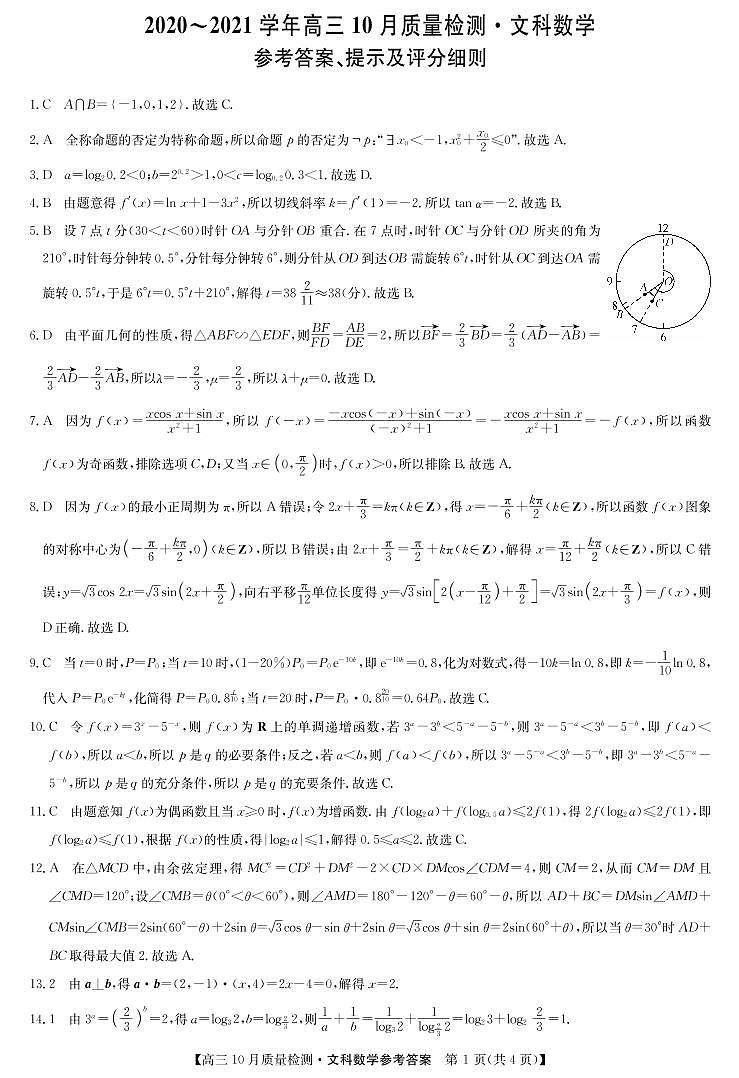 2020～2021 学年高三 10 月质量检测·文科数学
参考答案、提示及评分细则
1. C　A∩B={-1,0,1,2}.故选 C.
2. A　全称命题的否定为特称命题,所以命题 p 的否定为¬p:“∃x₀<-1,x₀²+x₀/2≤0”.故选 A.
3. D　a=log₂0.2<0;b=2^0.2>1,0<c=log_0.2 0.3<1.故选 D.
4. B　由题意得 f′(x)=ln x+1-3x²,所以切线斜率 k=f′(1)=-2.所以 tan α=-2.故选 B.
5. B　设 7 点 t 分(30<t<60)时针 OA 与分针 OB 重合.在 7 点时,时针 OC 与分针 OD 所夹的角为
210°,时针每分钟转 0.5°,分针每分钟转 6°,则分针从 OD 到达 OB 需旋转 6°t,时针从 OC 到达 OA 需
旋转 0.5°t,于是 6°t=0.5°t+210°,解得 t=38 2/11≈38(分).故选 B.
12
D
9
O
A
8
B
C
7
6
6. D　由平面几何的性质,得△ABF∽△EDF,则BF/FD=AB/DE=2,所以→BF=2/3→BD=2/3(→AD-→AB)=
2/3→AD-2/3→AB,所以λ=-2/3,μ=2/3,所以 λ+μ=0.故选 D.
7. A　因为 f(x)=(xcos x+sin x)/(x²+1),所以 f(-x)=(-xcos(-x)+sin(-x))/((-x)²+1)=-(xcos x+sin x)/(x²+1)=-f(x),所以函数
f(x)为奇函数,排除选项 C,D;又当 x∈(0,π/2)时,f(x)>0,所以排除 B.故选 A.
8. D　因为 f(x)的最小正周期为 π,所以 A 错误;令 2x+π/3=kπ(k∈Z),得 x=-π/6+kπ/2(k∈Z),所以函数 f(x)图象
的对称中心为(-π/6+kπ/2,0)(k∈Z),所以 B 错误;由 2x+π/3=π/2+kπ(k∈Z),解得 x=π/12+kπ/2(k∈Z),所以 C 错
误;y=√3cos 2x=√3sin(2x+π/2),向右平移π/12单位长度得 y=√3sin[2(x-π/12)+π/2]=√3sin(2x+π/3)=f(x),则
D 正确.故选 D.
9. C　当 t=0 时,P=P₀;当 t=10 时,(1-20%)P₀=P₀e^(-10k),即 e^(-10k)=0.8,化为对数式,得-10k=ln 0.8,即 k=-1/10 ln 0.8,
代入 P=P₀e^(-kt),化简得 P=P₀0.8^(t/10);当 t=20 时,P=P₀·0.8^(20/10)=0.64P₀.故选 C.
10. C　令 f(x)=3^x-5^(-x),则 f(x)为 R 上的单调递增函数,若 3^a-3^b<5^(-a)-5^(-b),则 3^a-5^(-a)<3^b-5^(-b),即 f(a)<
f(b),所以 a<b,所以 p 是 q 的必要条件;反之,若 a<b,则 f(a)<f(b),所以 3^a-5^(-a)<3^b-5^(-b),即 3^a-3^b<5^(-a)-
5^(-b),所以 p 是 q 的充分条件,所以 p 是 q 的充要条件.故选 C.
11. C　由题意知 f(x)为偶函数且当 x≥0 时,f(x)为增函数.由 f(log₂a)+f(log_0.5 a)≤2f(1),得 2f(log₂a)≤2f(1),即
f(log₂a)≤f(1),根据 f(x)的性质,得|log₂a|≤1,解得 0.5≤a≤2.故选 C.
12. A　在△MCD 中,由余弦定理,得 MC²=CD²+DM²-2×CD×DMcos∠CDM=4,则 CM=2,从而 CM=DM 且
∠CMD=120°;设∠CMB=θ(0°<θ<60°),则∠AMD=180°-120°-θ=60°-θ,所以 AD+BC=DMsin∠AMD+
CMsin∠CMB=2sin(60°-θ)+2sin θ=√3cos θ-sin θ+2sin θ=√3cos θ+sin θ=2sin(60°+θ),所以当 θ=30°时 AD+
BC 取得最大值 2.故选 A.
13. 2　由 a⊥b,得 a·b=(2,-1)·(x,4)=2x-4=0,解得 x=2.
14. 1　由 3^a=(2/3)^b=2,得 a=log₃2,b=log_(2/3) 2,则1/a+1/b=1/log₃2+1/log_(2/3) 2=log₂3+log₂ 2/3=1.
【高三 10 月质量检测·文科数学参考答案　第 1 页(共 4 页)】